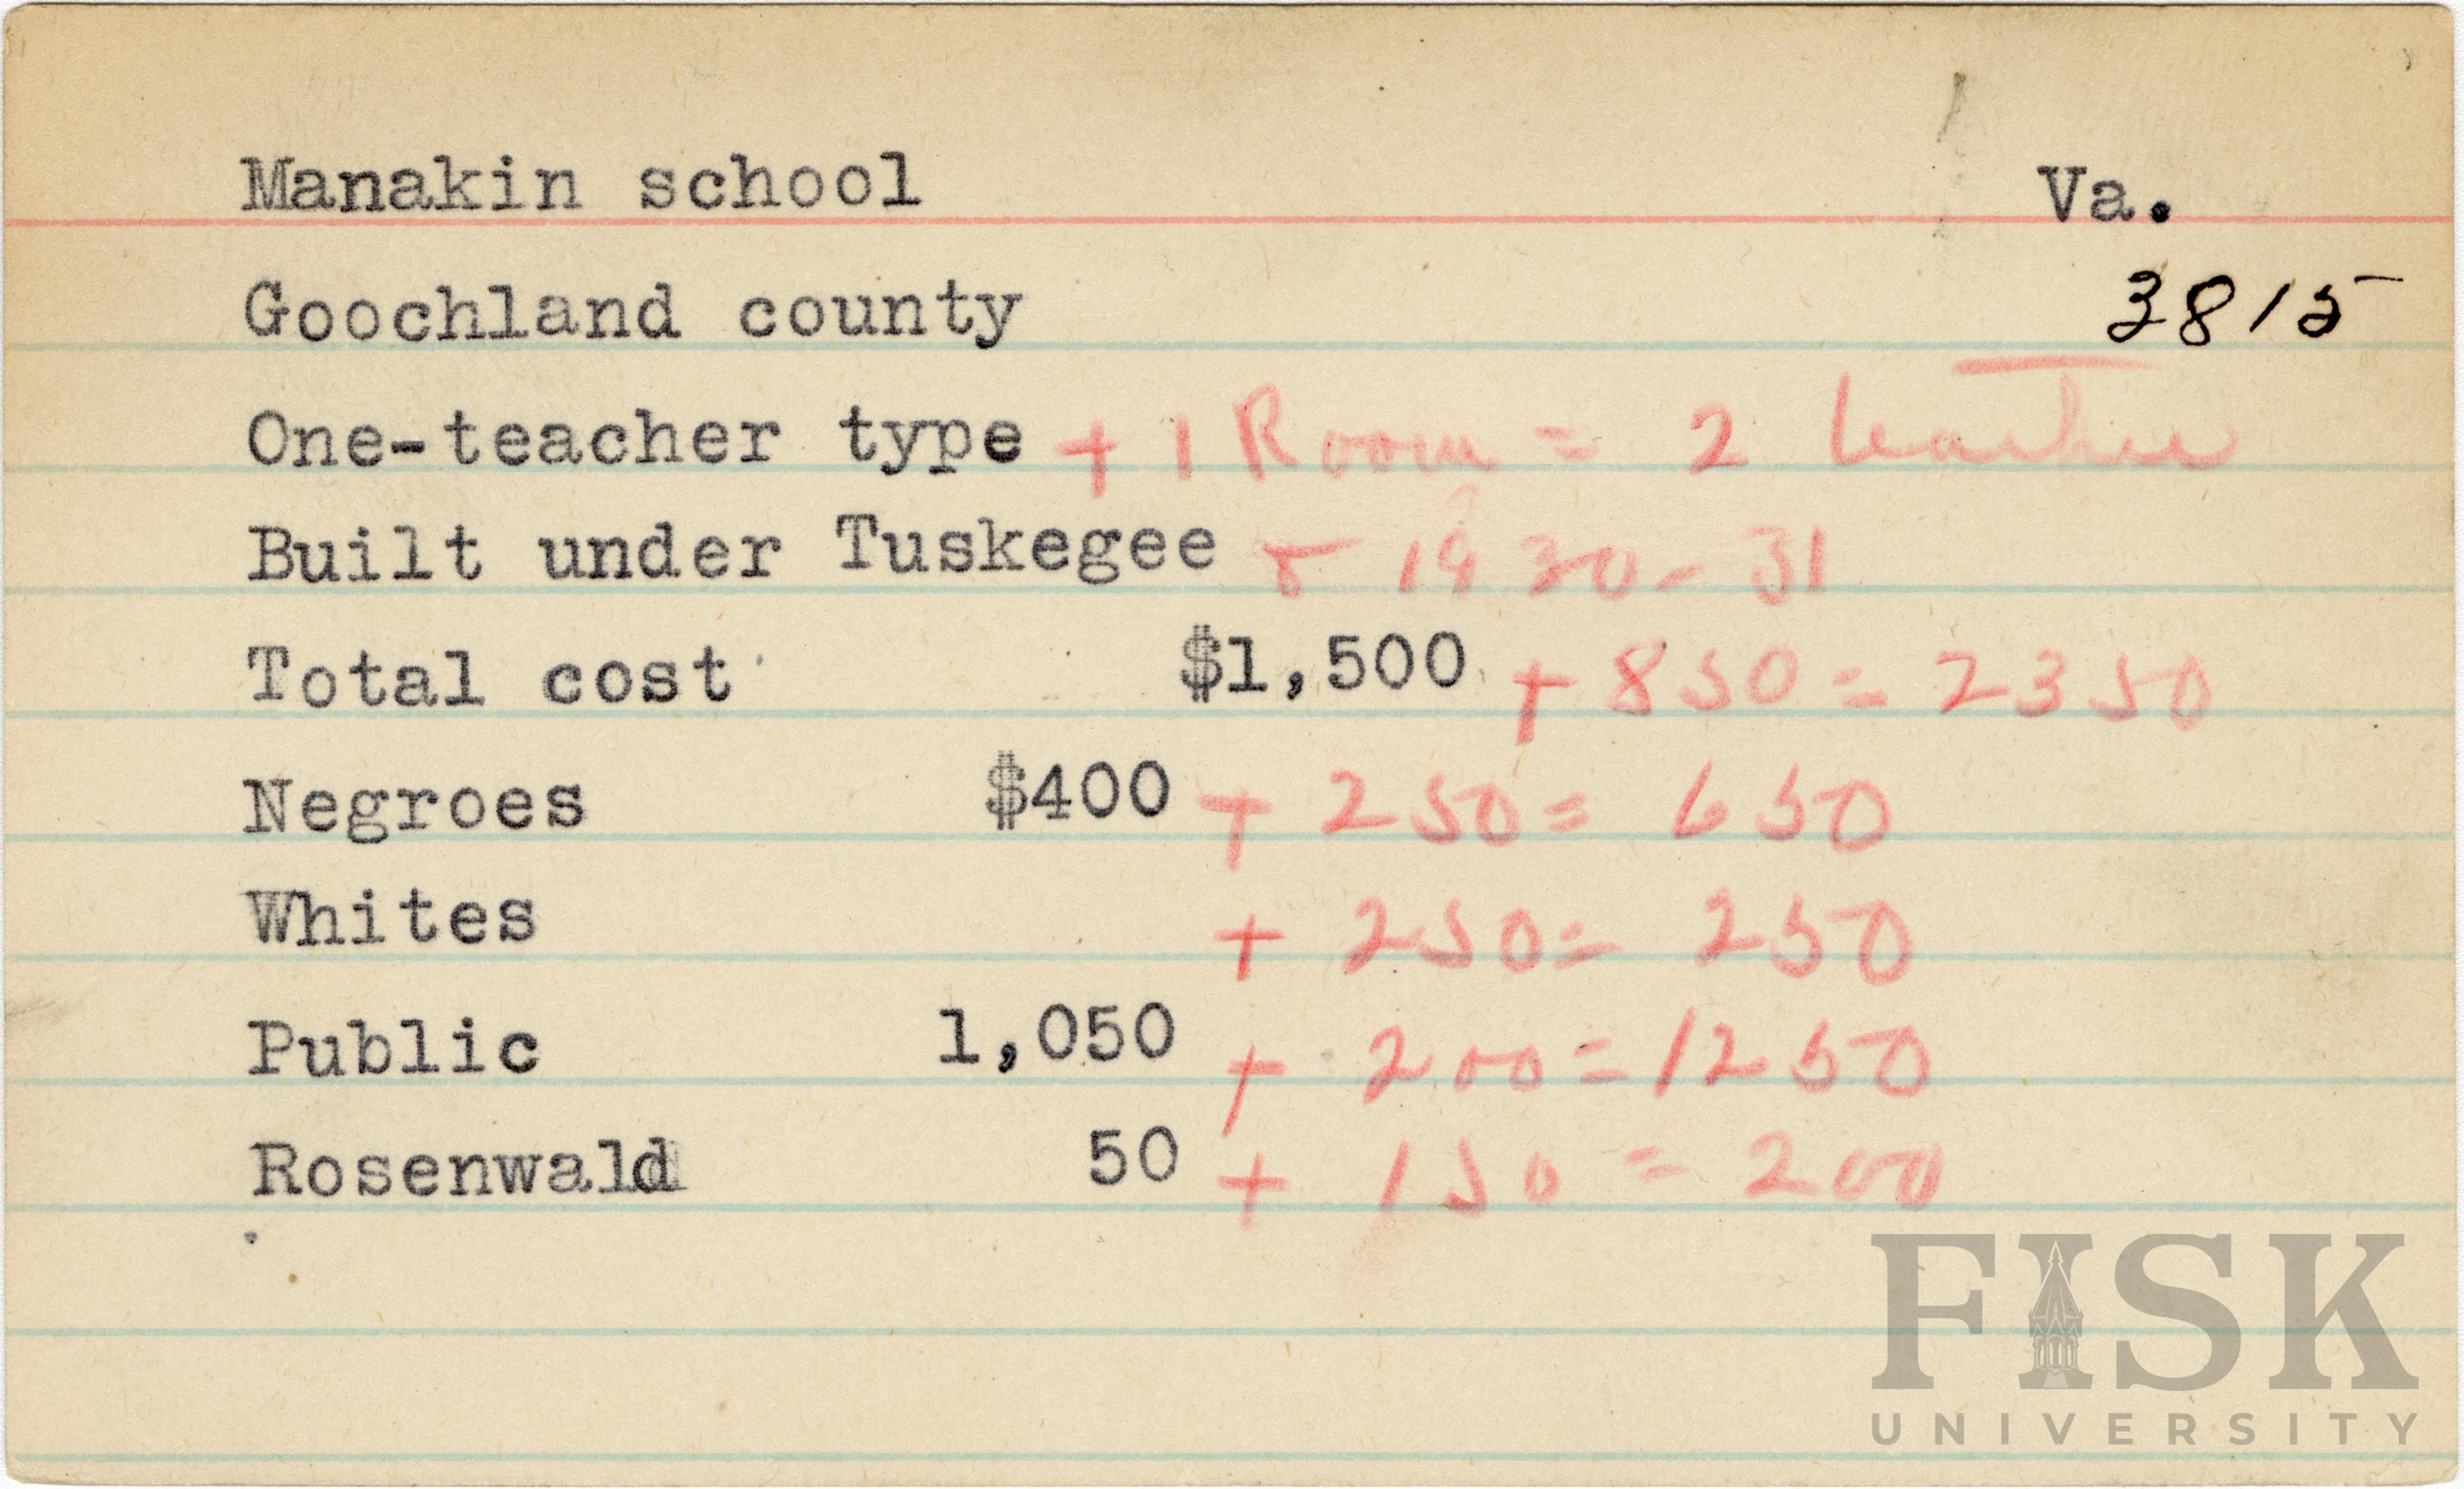 Manakin school Va.
Goochland county 3815
One-teacher type + 1 Room = 2 teacher
Built under Tuskegee + 1930-31
Total cost $1,500 + 850 = 2350
Negroes $400 + 250 = 650
Whites + 250 = 250
Public 1,050 + 200 = 1250
Rosenwald 50 + 150 = 200
FISK
UNIVERSITY